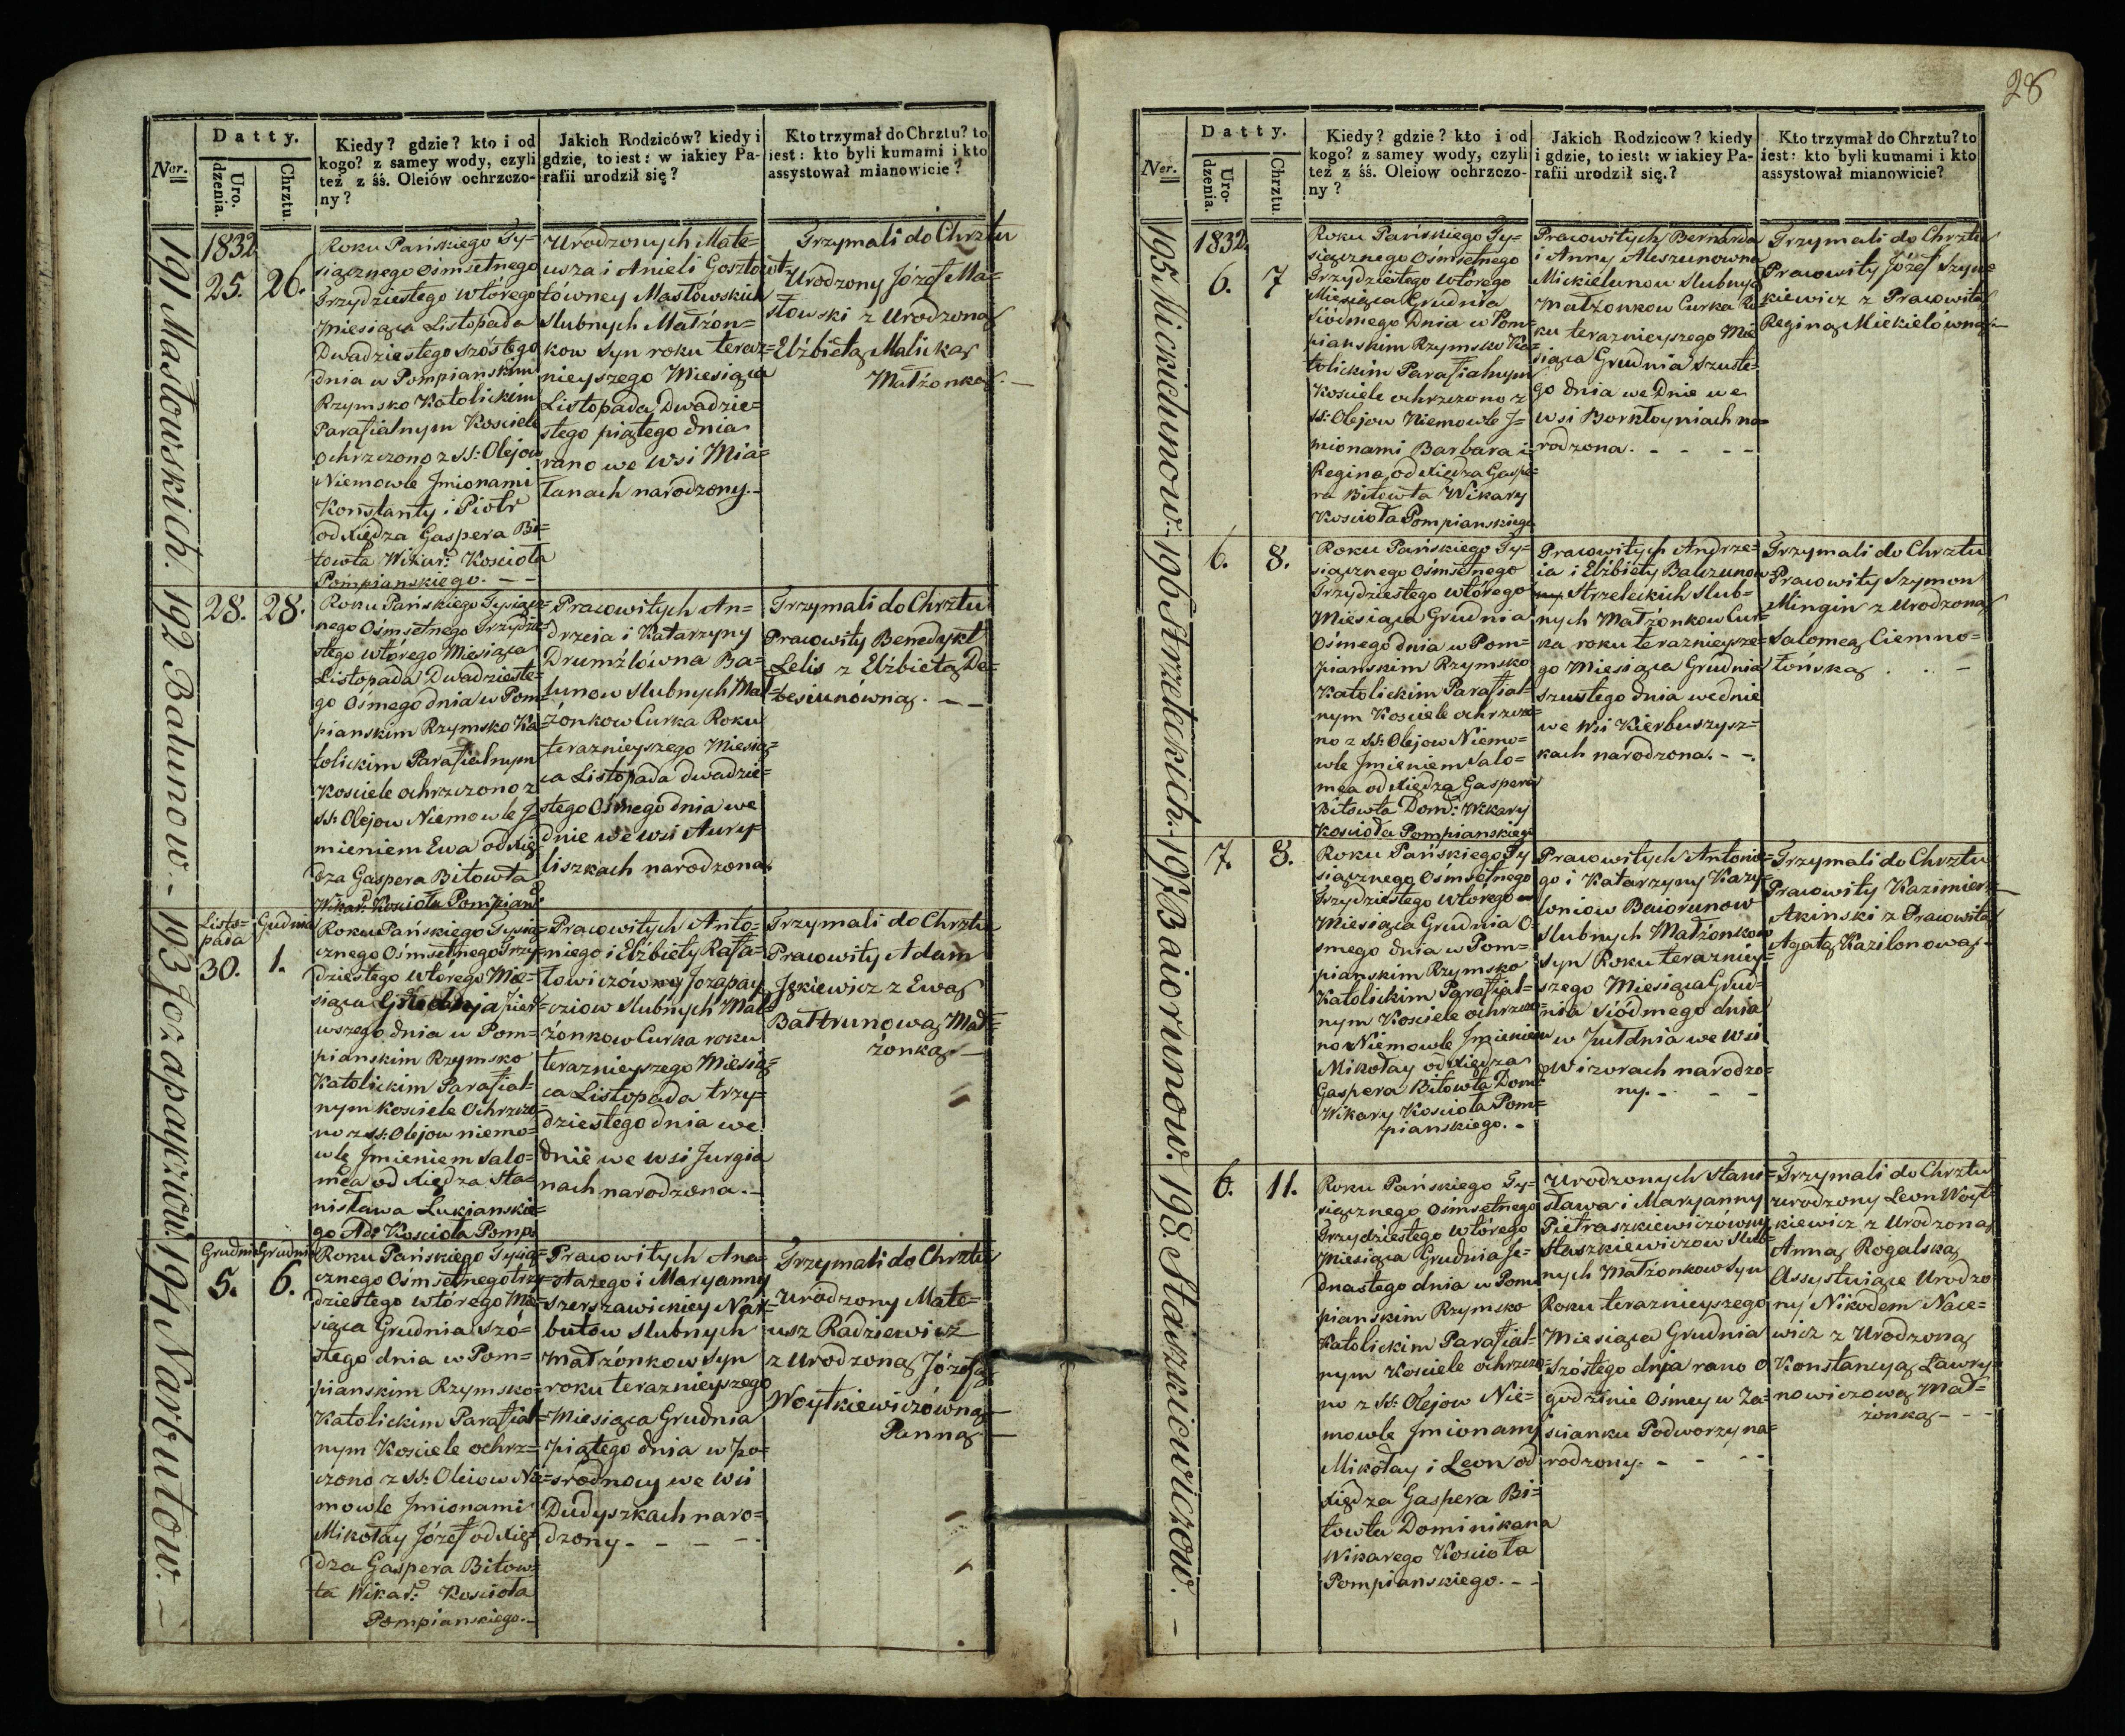 28
Datty.
Ner.
Uro-
dzenia.
Chrztu.
Kiedy? gdzie? kto i od
kogo? z samey wody, czyli
też z śś. Oleiów ochrzczo-
ny?
Jakich Rodziców? kiedy i
gdzie, to iest: w iakiey Pa-
rafii urodził się?
Kto trzymał do Chrztu? to
iest: kto byli kumami i kto
assystował mianowicie?
191 Masłowskich.
1832
25. 26.
Roku Pańskiego Ty=
siącznego Ośmsetnego
Trzydziestego wtórego
Miesiąca Listopada
Dwadziestego szóstego
dnia w Pompianskim
Rzymsko Katolickim
Parafialnym Kosciele
ochrzczono z SS: Olejow
Niemowle Jmionami
Konstanty i Piotr
od Xiędza Gaspera Bi=
towta Wikar: Kosciola
Pompianskiego. - -
Urodzonych Mate=
usza i Anieli Gosztowt=
tówney Masłowskich
Slubnych Małżon=
kow Syn roku teraz=
nieyszego Miesiąca
Listopada Dwadzie=
stego piątego dnia
rano we wsi Mia=
łunach narodzony.-
Trzymali do Chrztu
Urodzony Józef Ma=
słowski z Urodzoną
Elżbietą Malicką
Małżonką.-
192 Balunow.-
28. 28.
Roku Pańskiego Tysiącz=
nego Ośmsetnego Trzydzie=
stego wtórego Miesiąca
Listopada Dwadzieste=
go Ósmego dnia w Pom=
pianskim Rzymsko Ka=
tolickim Parafialnym
Kosciele ochrzczono z
SS: Olejow Niemowle J=
mieniem Ewa od Xię=
dza Gaspera Bitowta
Wikar: Kosciola Pompian:
Pracowitych An=
drzeia i Katarzyny
Drumźlówna Ba=
lunow Slubnych Mał=
żonkow Curka Roku
teraznieyszego Miesią=
ca Listopada dwadzie=
stego Ósmego dnia we
dnie we wsi Aury=
liszkach narodzona
Trzymali do Chrztu
Pracowity Benedykt
Lelis z Elżbietą De=
besiunówną. - -
193 Jozapayciow.
Listo=
pada
30.
Grudnia
1.
Roku Pańskiego Tysią=
cznego Ośmsetnego Trzy=
dziestego wtorego Mie=
siąca Grudnia pier=
wszego dnia w Pom=
pianskim Rzymsko
Katolickim Parafial=
nym Kosciele Ochrzczo=
no z SS: Olejow niemo=
wle Jmieniem Salo=
mea od Xiędza Sta=
nisława Lukianskie=
go Ad: Kosciola Pomp:
Pracowitych Anto=
niego i Elżbiety Rafa=
łowiczówny Jozapay
cziow Slubnych Mał=
żonkow Curka roku
teraznieyszego Miesią=
ca Listopada trzy=
dziestego dnia we
dnie we wsi Jurgia
nach narodzona.-
Trzymali do Chrztu
Pracowity Adam
Jękiewicz z Ewą
Bałtrunową Mał=
żonką -
194 Narbutow.-
Grudnia
5.
Grudnia
6.
Roku Pańskiego Tysią=
cznego Ośmsetnego trzy=
dziestego wtórego Mie=
siąca Grudnia Szó=
stego dnia w Pom=
pianskim Rzymsko=
Katolickim Parafial=
nym Kosciele ochrz=
czono z SS: Oleiow Nie=
mowle Jmionami
Mikołay Józef od Xię=
dza Gaspera Bitow=
ta Wikar: Kosciola
Pompianskiego.-
Pracowitych Ana=
stazego i Maryanny
Szerszawickiey Nar=
butow Slubnych
Małżonkow Syn
roku teraznieyszego
Miesiąca Grudnia
piątego dnia w po=
srodnocy we wsi
Dudyszkach naro=
dzony - - - -
Trzymali do Chrztu
Urodzony Mate=
usz Radziewicz
z Urodzoną Józefą
Woytkiewiczówną
Panną -
Datty.
Ner.
Uro-
dzenia.
Chrztu.
Kiedy? gdzie? kto i od
kogo? z samey wody, czyli
też z śś. Oleiow ochrzczo-
ny?
Jakich Rodzicow? kiedy
i gdzie, to iest: w iakiey Pa-
rafii urodził się.?
Kto trzymał do Chrztu? to
iest: kto byli kumami i kto
assystował mianowicie?
195 Mickielunow.
1832.
6. 7
Roku Pańskiego Ty=
siącznego Ośmsetnego
Trzydziestego wtórego
Miesiąca Grudnia
Siódmego Dnia w Pom=
pianskim Rzymsko Ka=
tolickim Parafialnym
Kosciele ochrzczono z
SS: Olejow Niemowle J=
mionami Barbara i
Regina, od Xiędza Gaspe=
ra Bitowta Wikary
Kosciola Pompianskiego
Pracowitych Bernarda
i Anny Aleszunowna
Mickielunow Slubnych
Małżonkow Curka Ro
ku teraznieyszego Mie
siąca Grudnia Szuste=
go dnia we Dnie we
wsi Borkłoyniach na=
rodzona. - - - -
Trzymali do Chrztu
Pracowity Józef Szyn=
kiewicz z Pracowitą
Reginą Mickielówną.-
196 Strzeleckich.
6. 8.
Roku Pańskiego Ty=
siącznego Ośmsetnego
Trzydziestego wtórego
Miesiąca Grudnia
Ośmego dnia w Pom=
pianskim Rzymsko
Katolickim Parafial=
nym Kosciele ochrzczo=
no z SS: Olejow Niemo=
wle Jmieniem Salo=
mea od Xiędza Gaspera
Bitowta Dom: Wikary
Kosciola Pompianskiego
Pracowitych Andrze=
ia i Elżbiety Balczunow
ny Strzeleckich Slub=
nych Małżonkow Cur=
ka roku teraznieysze=
go Miesiąca Grudnia
Szustego dnia wednie
we Wsi Kierbuszysz=
kach narodzona. - -.
Trzymali do Chrztu
Pracowity Szymon
Mingin z Urodzoną
Salomeą Ciemno=
łońską . . -
197 Baiorunow.
7. 8.
Roku Pańskiego Ty
siącznego Ośmsetnego
Trzydziestego Wtorego
Miesiąca Grudnia O=
smego dnia w Pom=
pianskim Rzymsko
Katolickim Parafial=
nym Kosciele ochrzczo=
no Niemowle Jmieniem
Mikołay od Xiędza
Gaspera Bitowta Dom:
Wikary Kosciola Pom=
pianskiego. -
Pracowitych Antonie=
go i Katarzyny Kazy=
loniow Baiorunow
Slubnych Małżonkow
Syn Roku terazniey=
szego Miesiąca Grud=
nia Siódmego dnia
w Jutdnia we Wsi
Wizorach narodzo=
ny. - - -
Trzymali do Chrztu
Pracowity Kazimierz
Akinski z Pracowitą
Agatą Kazilonową.
198. Staszkiewiczow. -
6. 11.
Roku Pańskiego Ty=
siącznego Ośmsetnego
Trzydziestego Wtórego
Miesiąca Grudnia Je=
dnastego dnia w Pom
pianskim Rzymsko
Katolickim Parafial=
nym Kosciele ochrzczo=
no z SS: Olejow Nie=
mowle Jmionamy
Mikołay i Leon od
Xiędza Gaspera Bi=
towta Dominikana
Wikarego Kosciola
Pompianskiego. - -
Urodzonych Stani=
sława i Maryanny
Pietraszkiewiczówny
Staszkiewiczow Slub=
nych Małżonkow Syn
Roku teraznieyszego
Miesiąca Grudnia
Szóstego dnia rano o
godzinie Ósmey w Za=
scianku Podworzy na=
rodzony. - - - -
Trzymali do Chrztu
urodzony Leon Woyt=
kiewicz z Urodzoną
Anną Rogalską
Assystuiące Urodzo
ny Nikodem Nace=
wicz z Urodzoną
Konstancyą Ławry=
nowiczową Mał=
żonką - - -